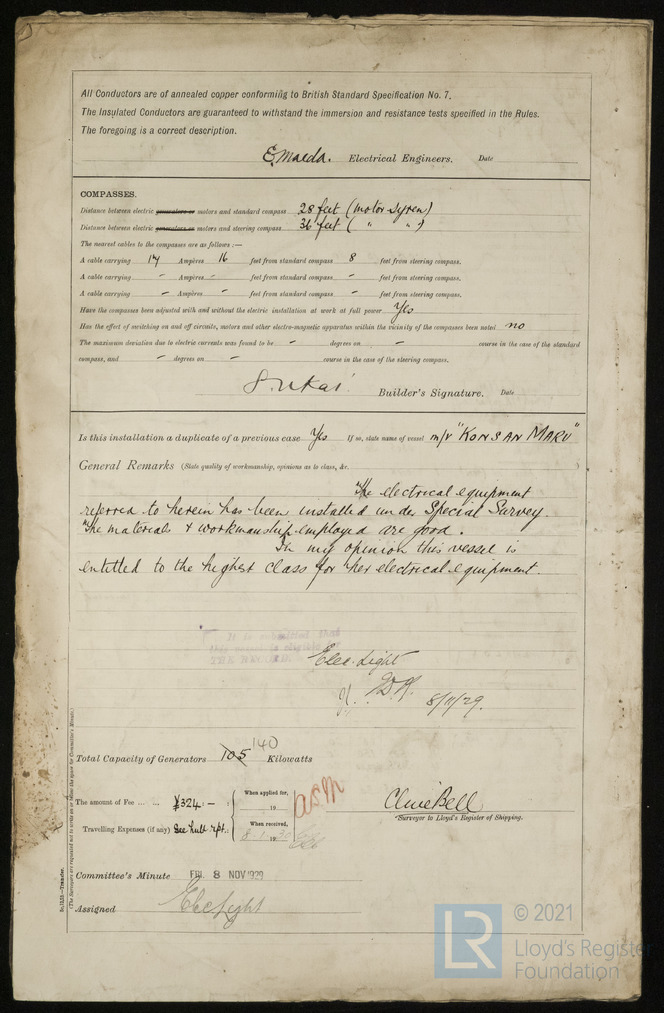 All Conductors are of annealed copper conforming to British Standard Specification No. 7.
The Insulated Conductors are guaranteed to withstand the immersion and resistance tests specified in the Rules.
The foregoing is a correct description.
E. Maeda. Electrical Engineers. Date
COMPASSES.
Distance between electric generators or motors and standard compass 28 feet (motor Syren)
Distance between electric generators or motors and steering compass 36 feet ( " " )
The nearest cables to the compasses are as follows :—
A cable carrying 14 Ampères 16 feet from standard compass 8 feet from steering compass.
A cable carrying - Ampères - feet from standard compass - feet from steering compass.
A cable carrying - Ampères - feet from standard compass - feet from steering compass.
Have the compasses been adjusted with and without the electric installation at work at full power Yes
Has the effect of switching on and off circuits, motors and other electro-magnetic apparatus within the vicinity of the compasses been noted no
The maximum deviation due to electric currents was found to be - degrees on - course in the case of the standard
compass, and - degrees on - course in the case of the steering compass.
Builder's Signature. Date
Is this installation a duplicate of a previous case Yes If so, state name of vessel m/v "KONSAN MARU"
General Remarks (State quality of workmanship, opinions as to class, &c. )
The electrical equipment
referred to herein has been installed under Special Survey.
The materials & workmanship employed are good.
In my opinion this vessel is
entitled to the highest class for her electrical equipment.
It is submitted that
this vessel is eligible for
THE RECORD.
Elec. Light
8/11/29.
Total Capacity of Generators 105 140 Kilowatts
The amount of Fee ... ... ¥324:— :
When applied for,
19
Travelling Expenses (if any) See hull rpt. :
When received,
8-1-30
Clive Bell
Surveyor to Lloyd's Register of Shipping.
Committee's Minute FRI. 8 NOV 1929
Assigned Elec Light
(The Surveyors are requested not to write on or below the space for Committee's Minute.)
© 2021
LR
Lloyd's Register
Foundation